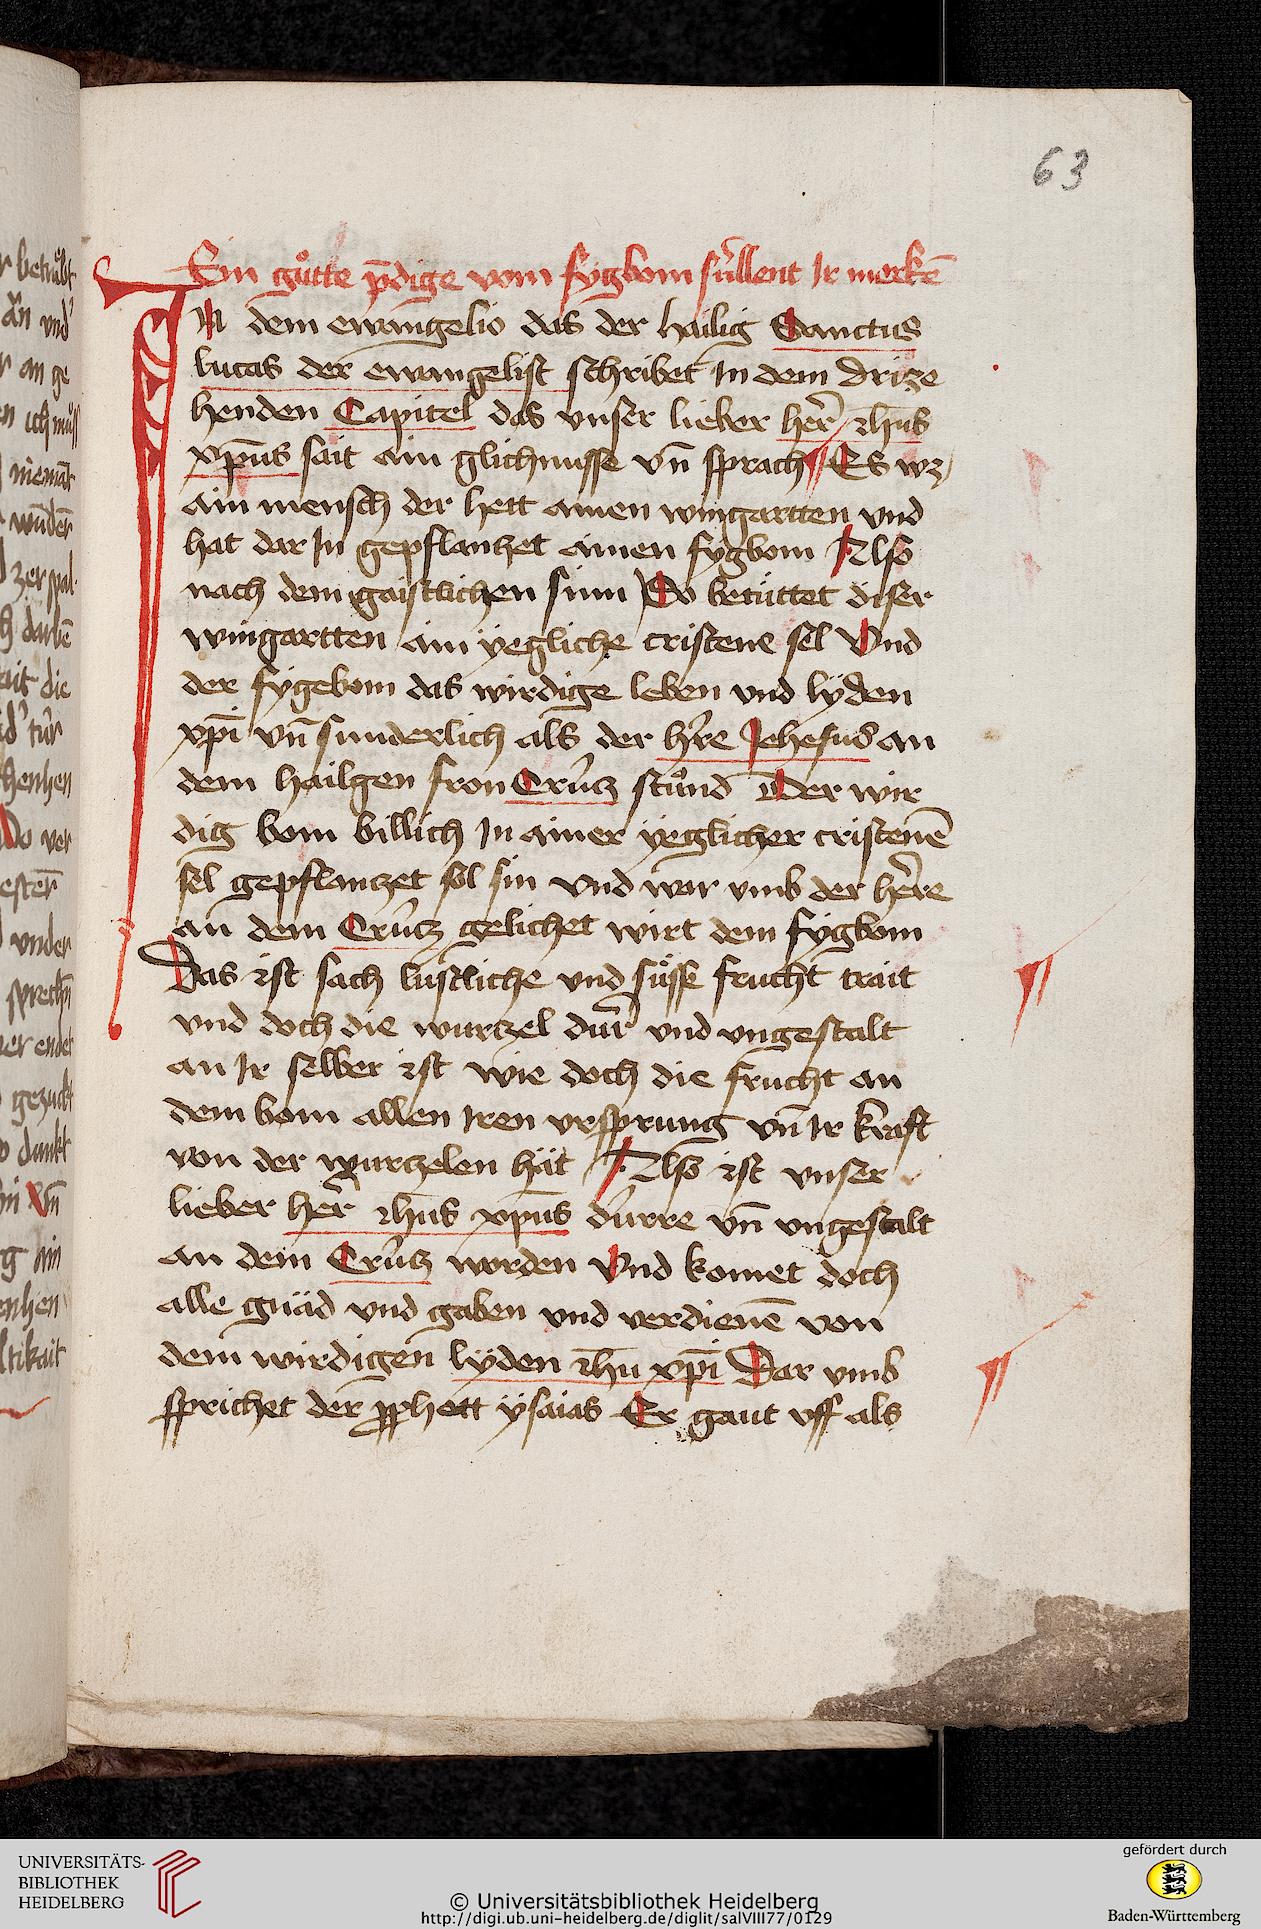 63
Ein gůtte p̄dige vom fygbom süllent Ir merkē
IN dem ewangelio das der hailig Sanctus
lucas der ewangelist schribet In dem drize
henden Capitel das vnser lieber her̄ ihūs
xp̄us sait ain glichnusse vn̄ sprach Es wz
ain mensch der hett ainen wingartten vnd
hat dar In gepflantzet ainen fygbom Also
nach dem gaistlichen sinn So betüttet diser
wingartten ain yegliche cristene sel Vnd
der fygebom das wirdige leben vnd lyden
xp̄i vn̄ sunderlich als der hr̄e Jehesus an
dem hailgen fron Crütz stůnd Der wir
dig bom billich In ainer yeglicher cristenē
sel gepflantzet sol sin vnd war vmb der her̄e
an dem Crütz gelichet wirt dem fygbom
Das ist sach lustliche vnd süsse frucht trait
vnd doch die wurtzel dür̄ vnd vngestalt
an Ir selber ist wie doch die frucht an
dem bom allen Iren vrsprung vn̄ Ir kraft
von der wurtzelen hät Also ist vnser
lieber her̄ ihūs xp̄us dürre vn̄ vngestalt
an dem Crütz worden Vnd komet doch
alle gnäd vnd gaben vnd verdienē von
dem wirdigen lyden ihū xp̄i Dar vmb
sprichet der prophett ysaias Er gaut vff als
UNIVERSITÄTS-
BIBLIOTHEK
HEIDELBERG
© Universitätsbibliothek Heidelberg
http://digi.ub.uni-heidelberg.de/diglit/salVIII77/0129
gefördert durch
Baden-Württemberg